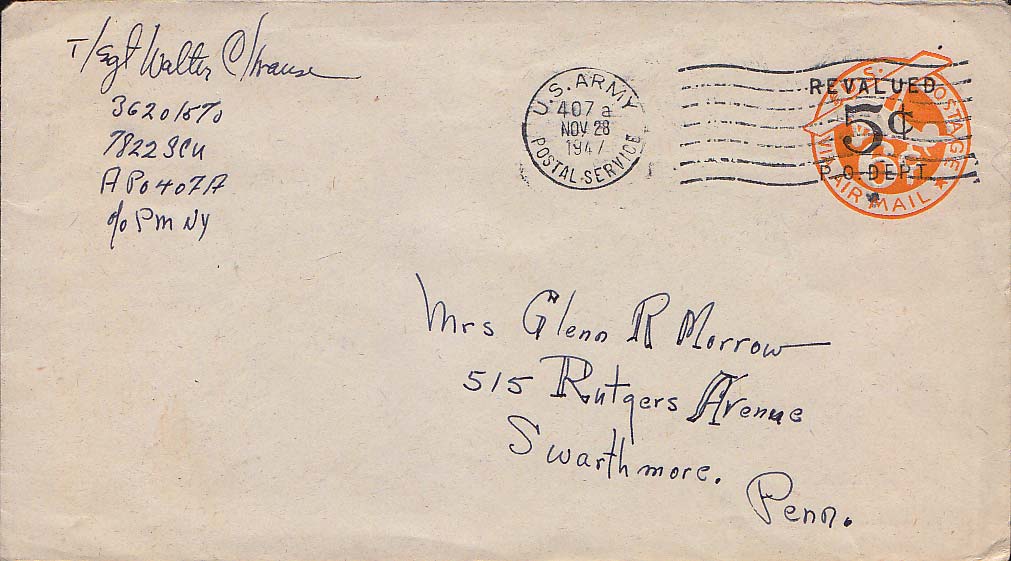 T/Sgt Walter C Krause
7822 SCU
APO 407A
c/o PM NY
U.S. ARMY
407 a
NOV 28
1947
POSTAL SERVICE
U.S. POSTAGE
REVALUED
5¢
P.O. DEPT.
VIA AIR MAIL
Mrs Glenn R Morrow
515 Rutgers Avenue
Swarthmore.
Penn.